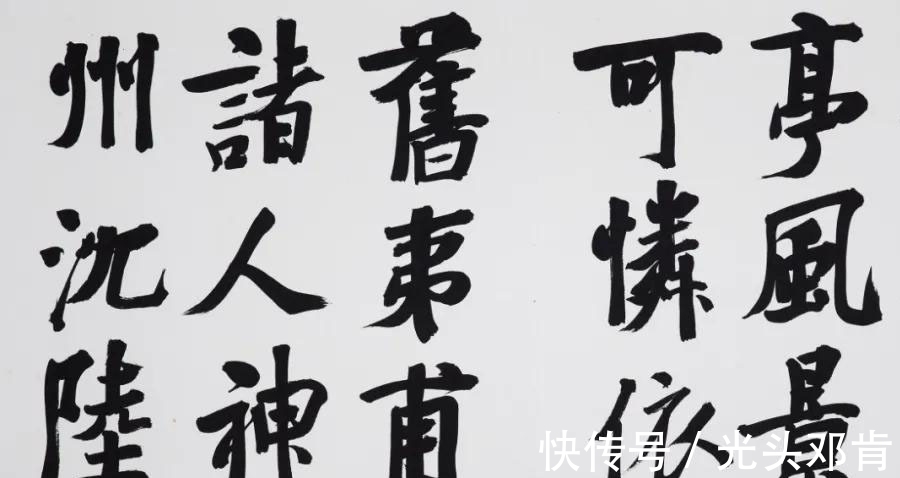 亭風景
可憐依
舊夷甫
諸人神
州沈陸
快传号 / 光头邓肯